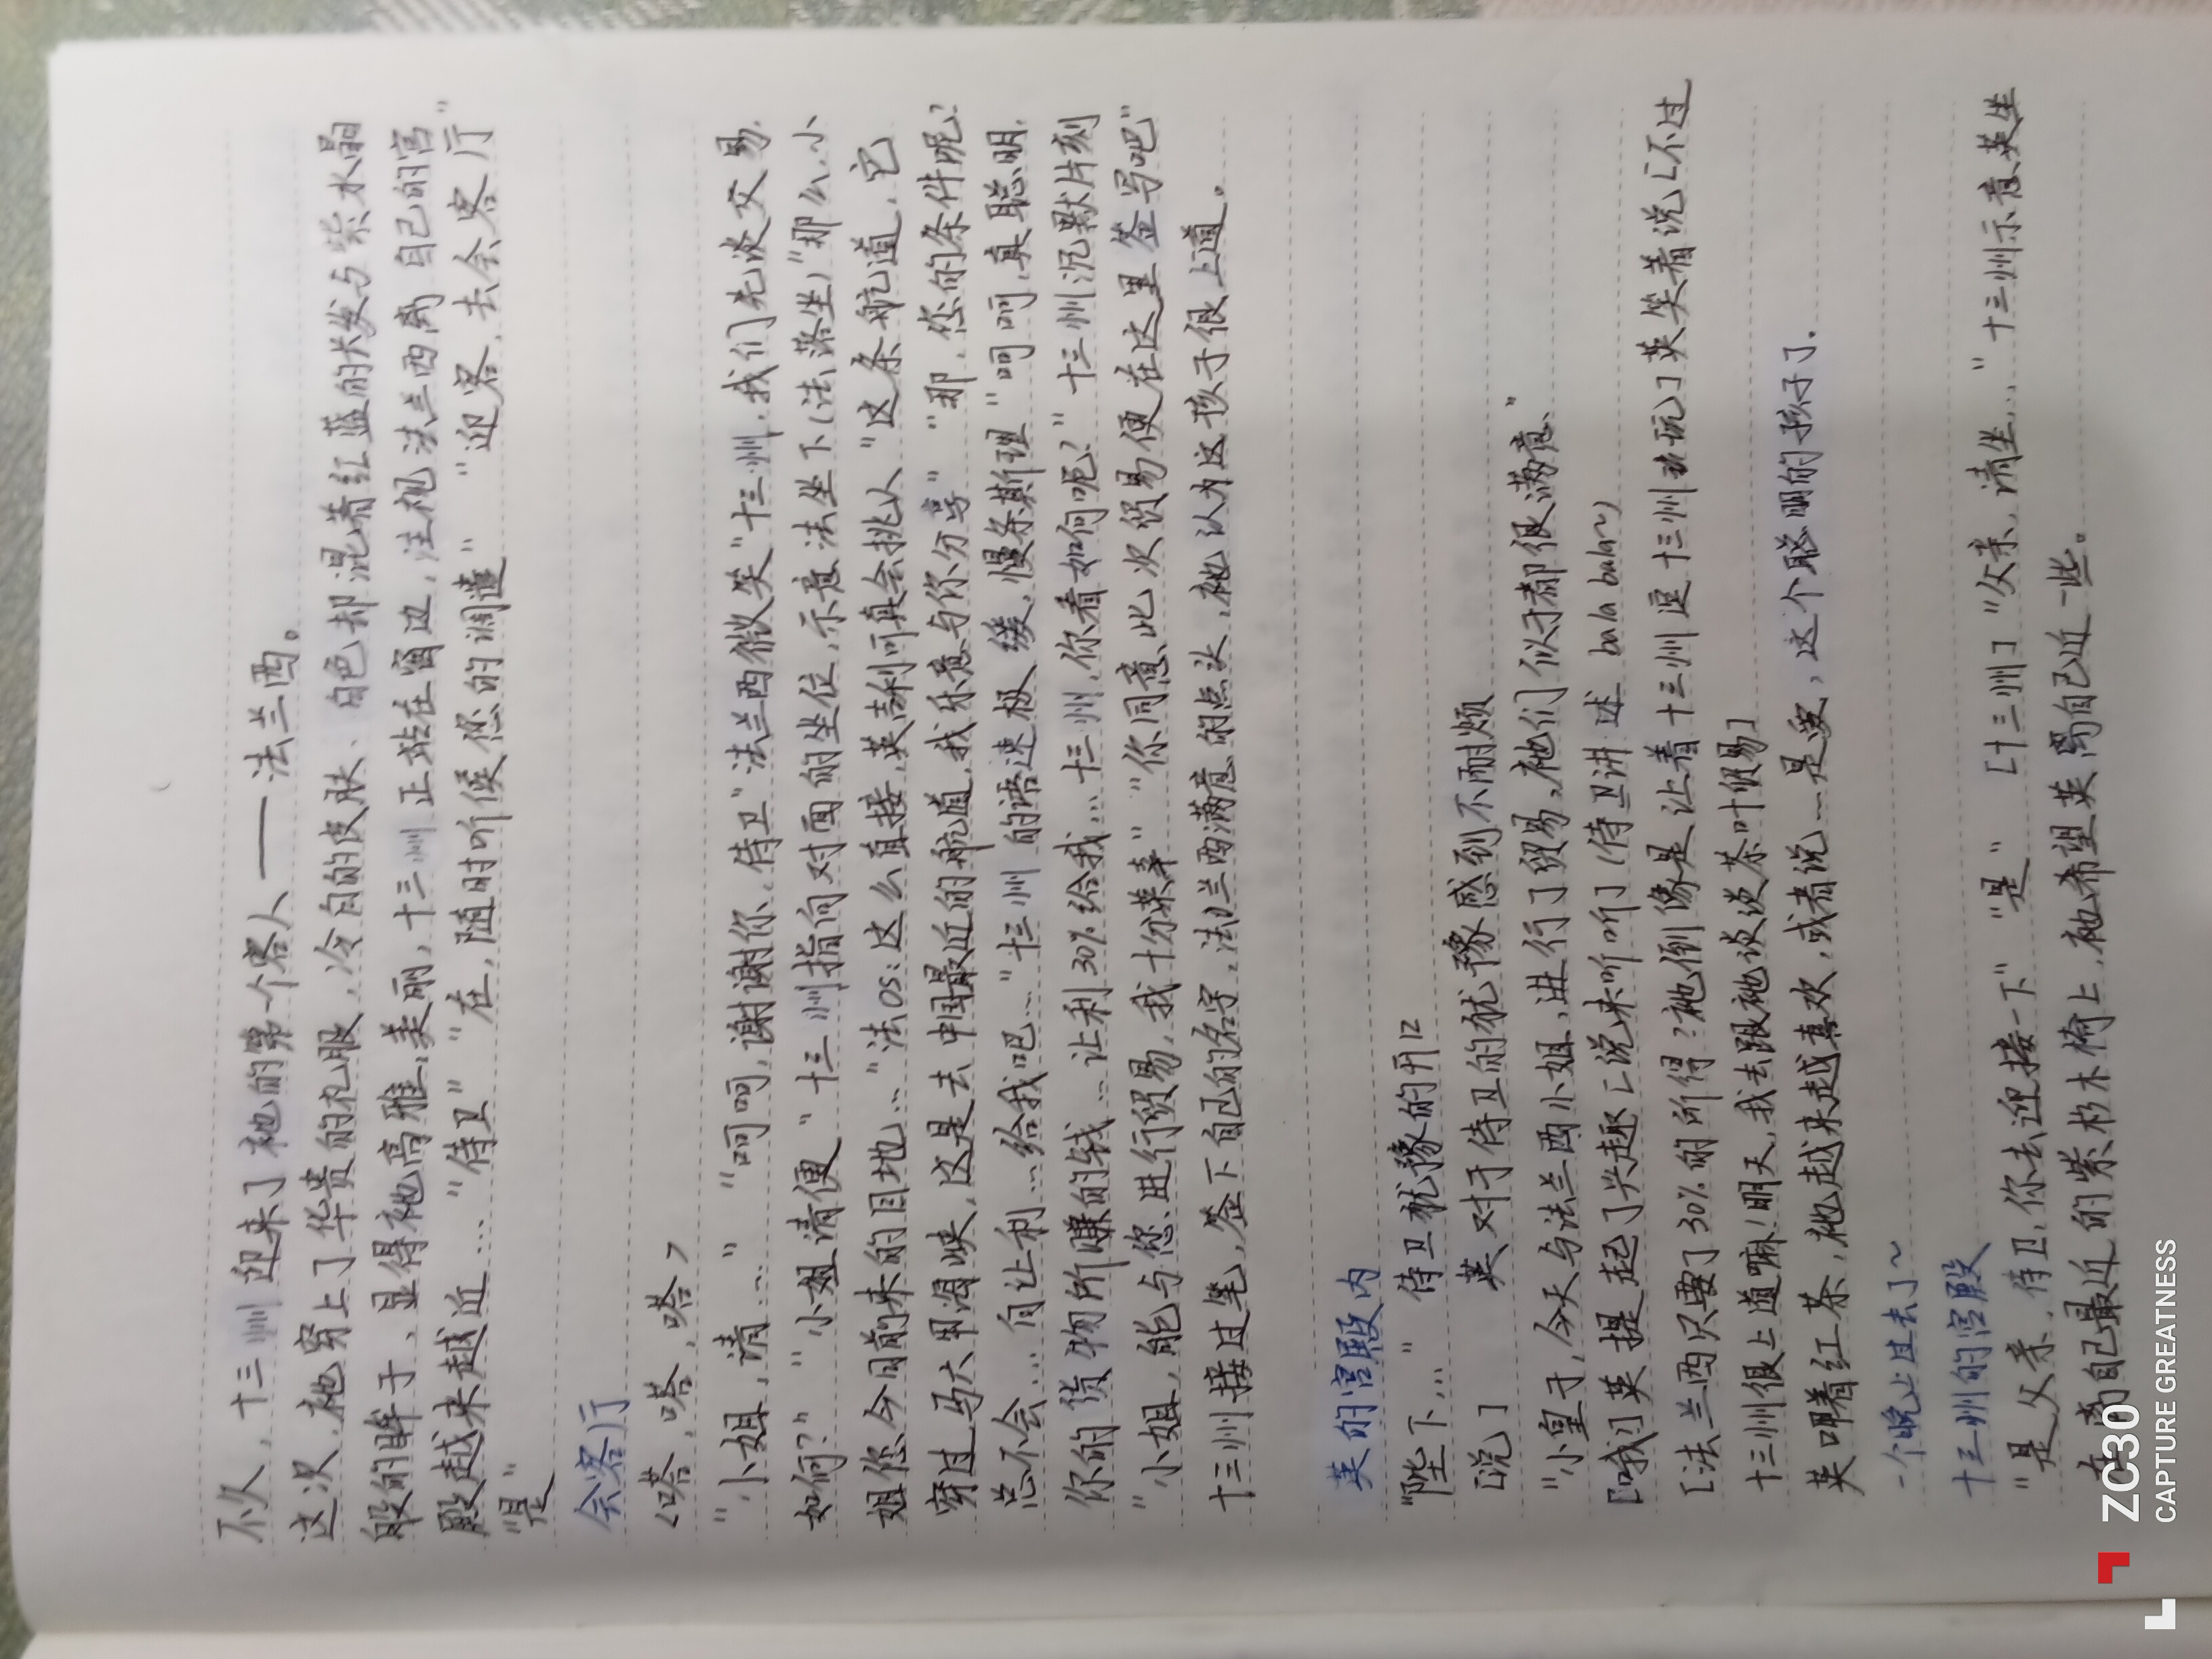 不久，十三州迎来了祂的第一个客人——法兰西。
这次，祂穿上了华贵的礼服，冷白的皮肤、白色却混着红蓝的长发与紫水晶
般的眸子，显得祂高雅，美丽，十三州正站在窗边，注视法兰西离自己的宫
殿越来越近…"侍卫" "在，随时听候您的调遣" "迎客，去会客厅"
"是"
会客厅
<嗒，嗒，嗒>
"小姐，请…" "呵呵，谢谢你，侍卫"法兰西微笑"十三州，我们先谈交易，
如何？" "小姐请便"十三州指向对面的坐位，示意法坐下(法落坐)"那么，小
姐您今日前来的目地…"法OS：这么直接，英吉利可真会挑人"这条航道，它
穿过马六甲海峡，这是去中国最近的航道，我乐意与你分享" "那，您的条件呢？
总不会…白让利…给我吧…"十三州的语速极缓，慢条斯理"呵呵，真聪明，
你的货物所赚的钱…让利30%给我…十三州，你看如何呢？"十三州沉默片刻
"小姐，能与您进行贸易，我十分荣幸" "你同意，此次贸易便在这里签写吧"
十三州接过笔，签下自己的名字，法兰西满意的点头，祂认为这孩子很上道。
英的宫殿内
"陛下…" 侍卫犹豫的开口
[说] 英对于侍卫的犹豫感到不耐烦
"小皇子，今天与法兰西小姐，进行了贸易，祂们似乎都很满意"
[哦]英提起了兴趣[说来听听](侍卫讲述 bula bula~)
[法兰西只要了30%的所得？祂倒像是让着十三州逗十三州玩]英笑着说[不过
十三州很上道嘛！明天，我去跟祂谈谈茶叶贸易]
英喝着红茶，祂越来越喜欢，或者说…是爱，这个聪明的孩子了.
一个晚上过去了~
十三州的宫殿
"是父亲，侍卫，你去迎接一下" "是" [十三州]"父亲，请坐…"十三州示意英坐
在离自己最近的紫杉木椅上，祂希望英离自己近一些。
ZC30
CAPTURE GREATNESS